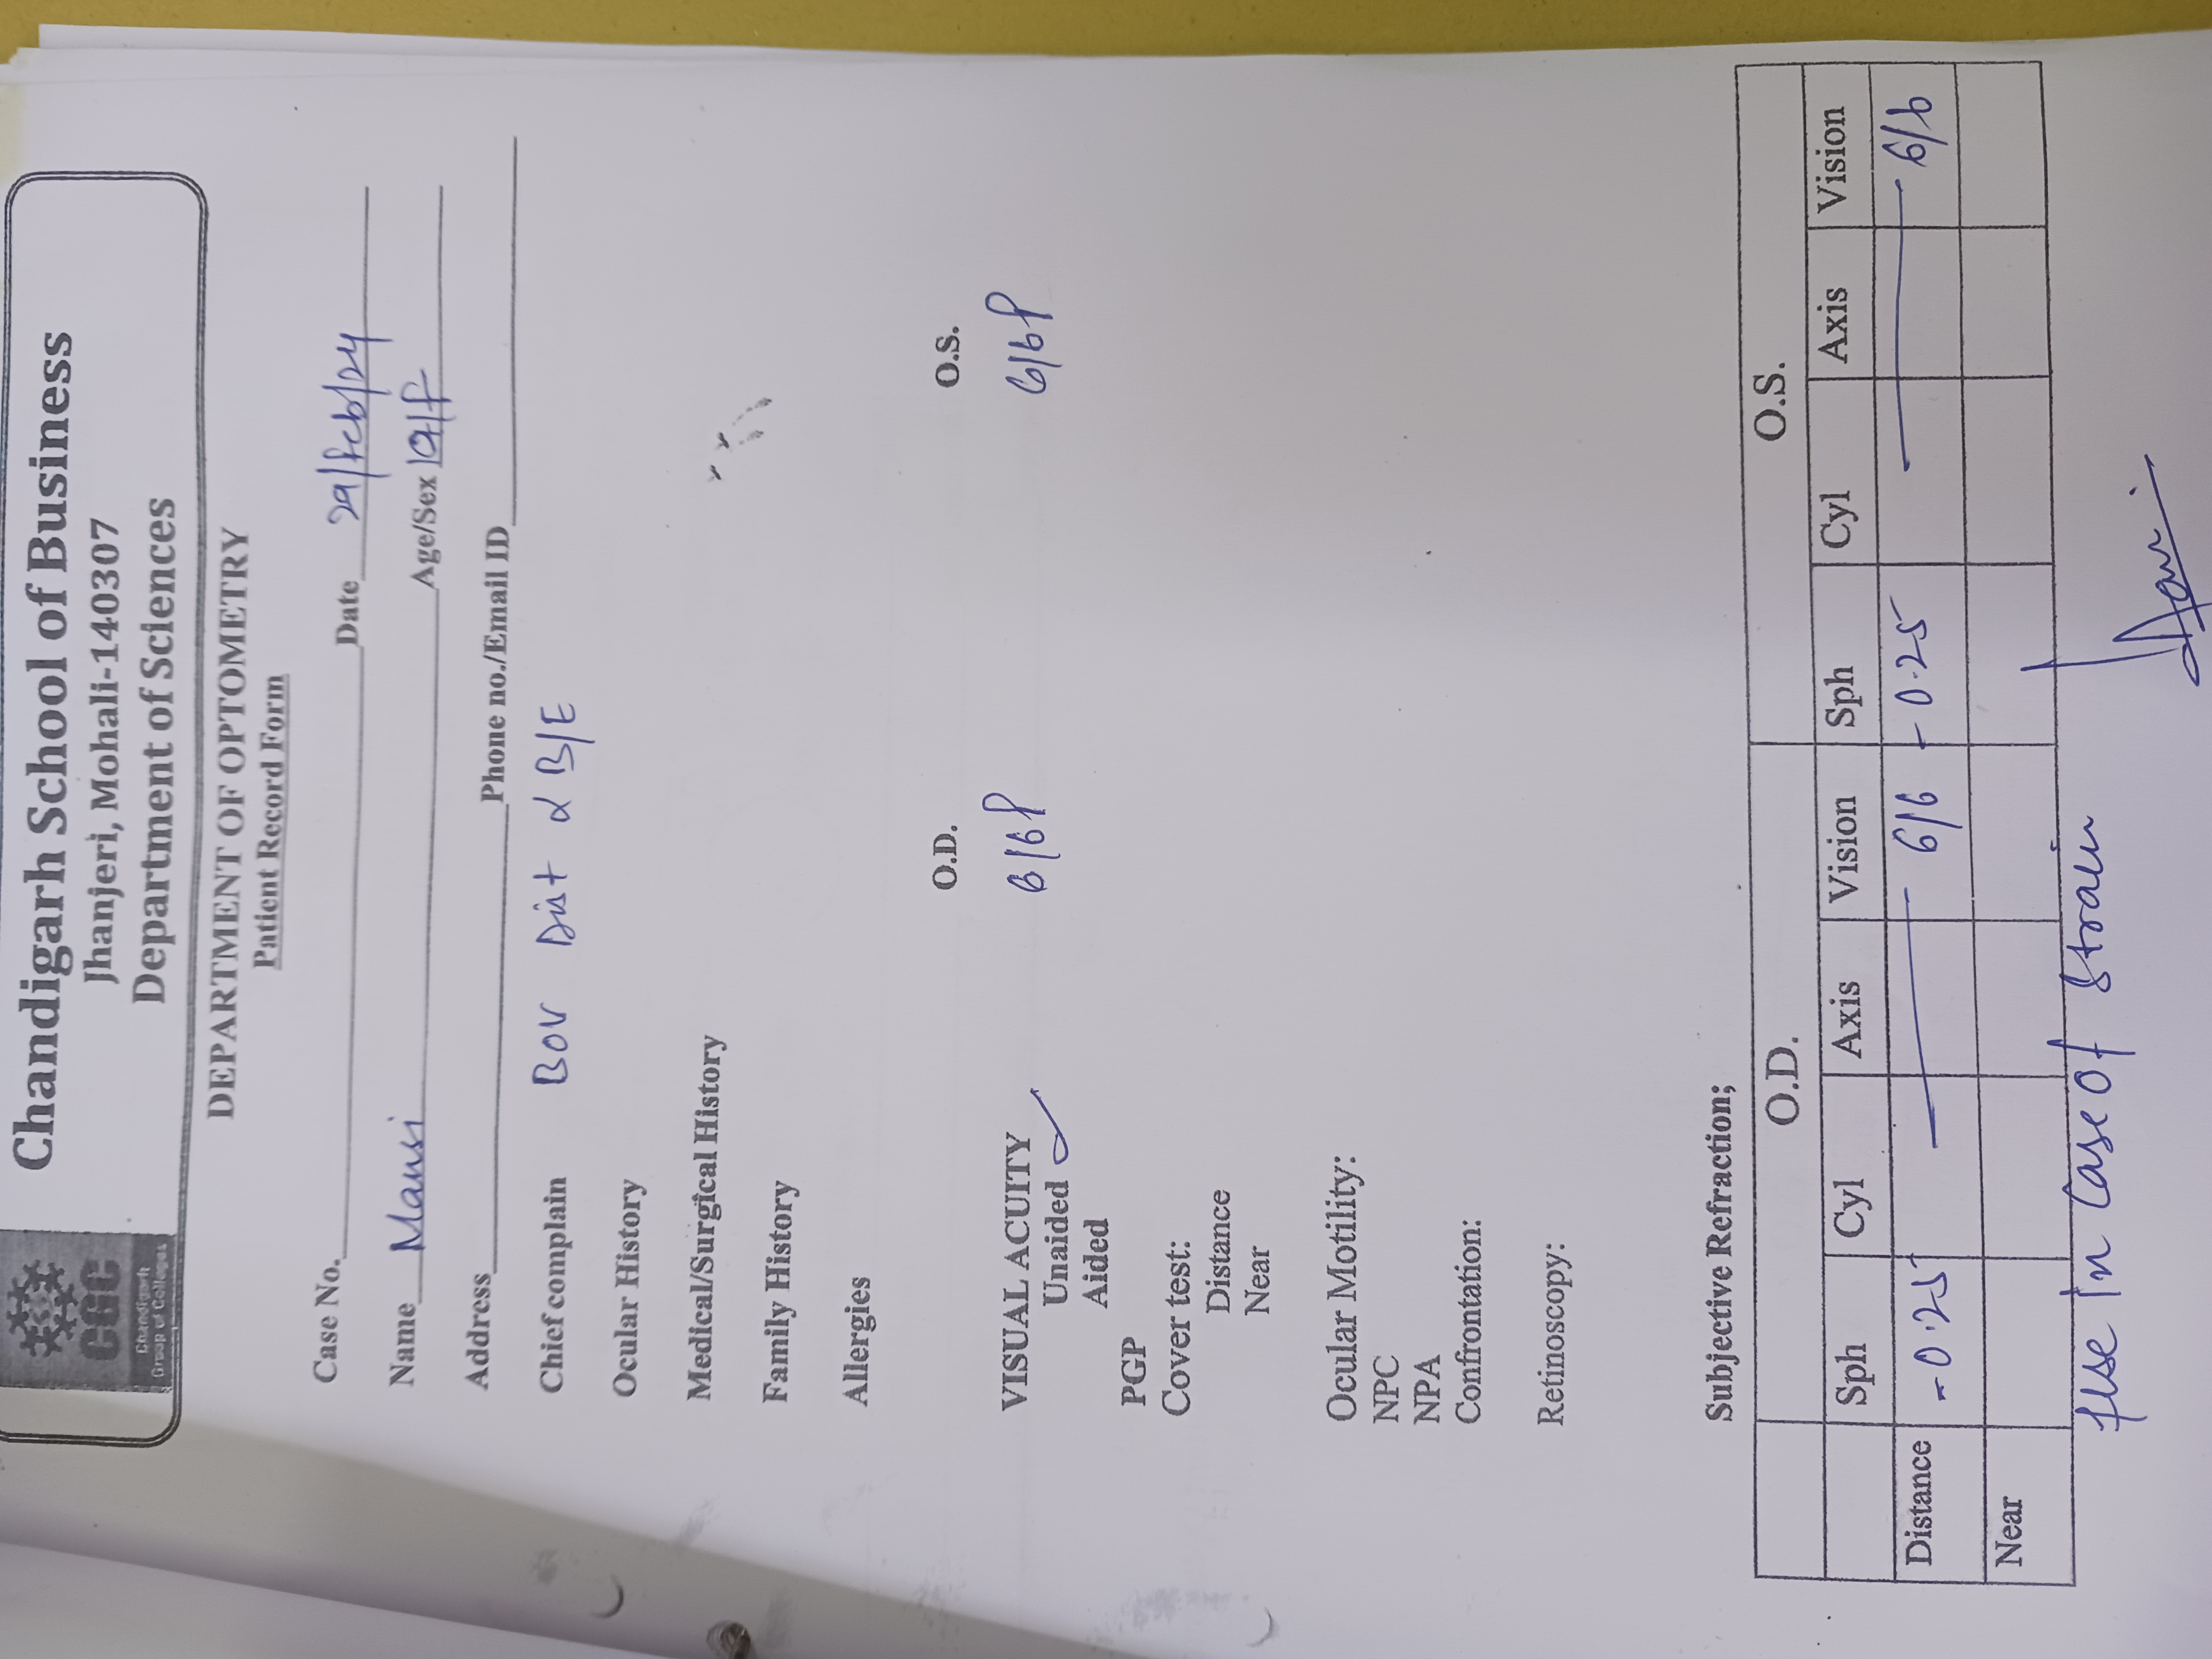 CGC
Chandigarh
Group of Colleges
Chandigarh School of Business
Jhanjeri, Mohali-140307
Department of Sciences
DEPARTMENT OF OPTOMETRY
Patient Record Form
Case No. Date 29/Feb/24
Name Mansi Age/Sex 19/F
Address Phone no./Email ID
Chief complain BOV Dist B/E
Ocular History
Medical/Surgical History
Family History
Allergies
O.D. O.S.
VISUAL ACUITY 6/6P 6/6P
Unaided
Aided
PGP
Cover test:
Distance
Near
Ocular Motility:
NPC
NPA
Confrontation:
Retinoscopy:
Subjective Refraction;
O.D. O.S.
Sph Cyl Axis Vision Sph Cyl Axis Vision
Distance -0.25 — 6/6 -0.25 — 6/6
Near
use in Case of Strain